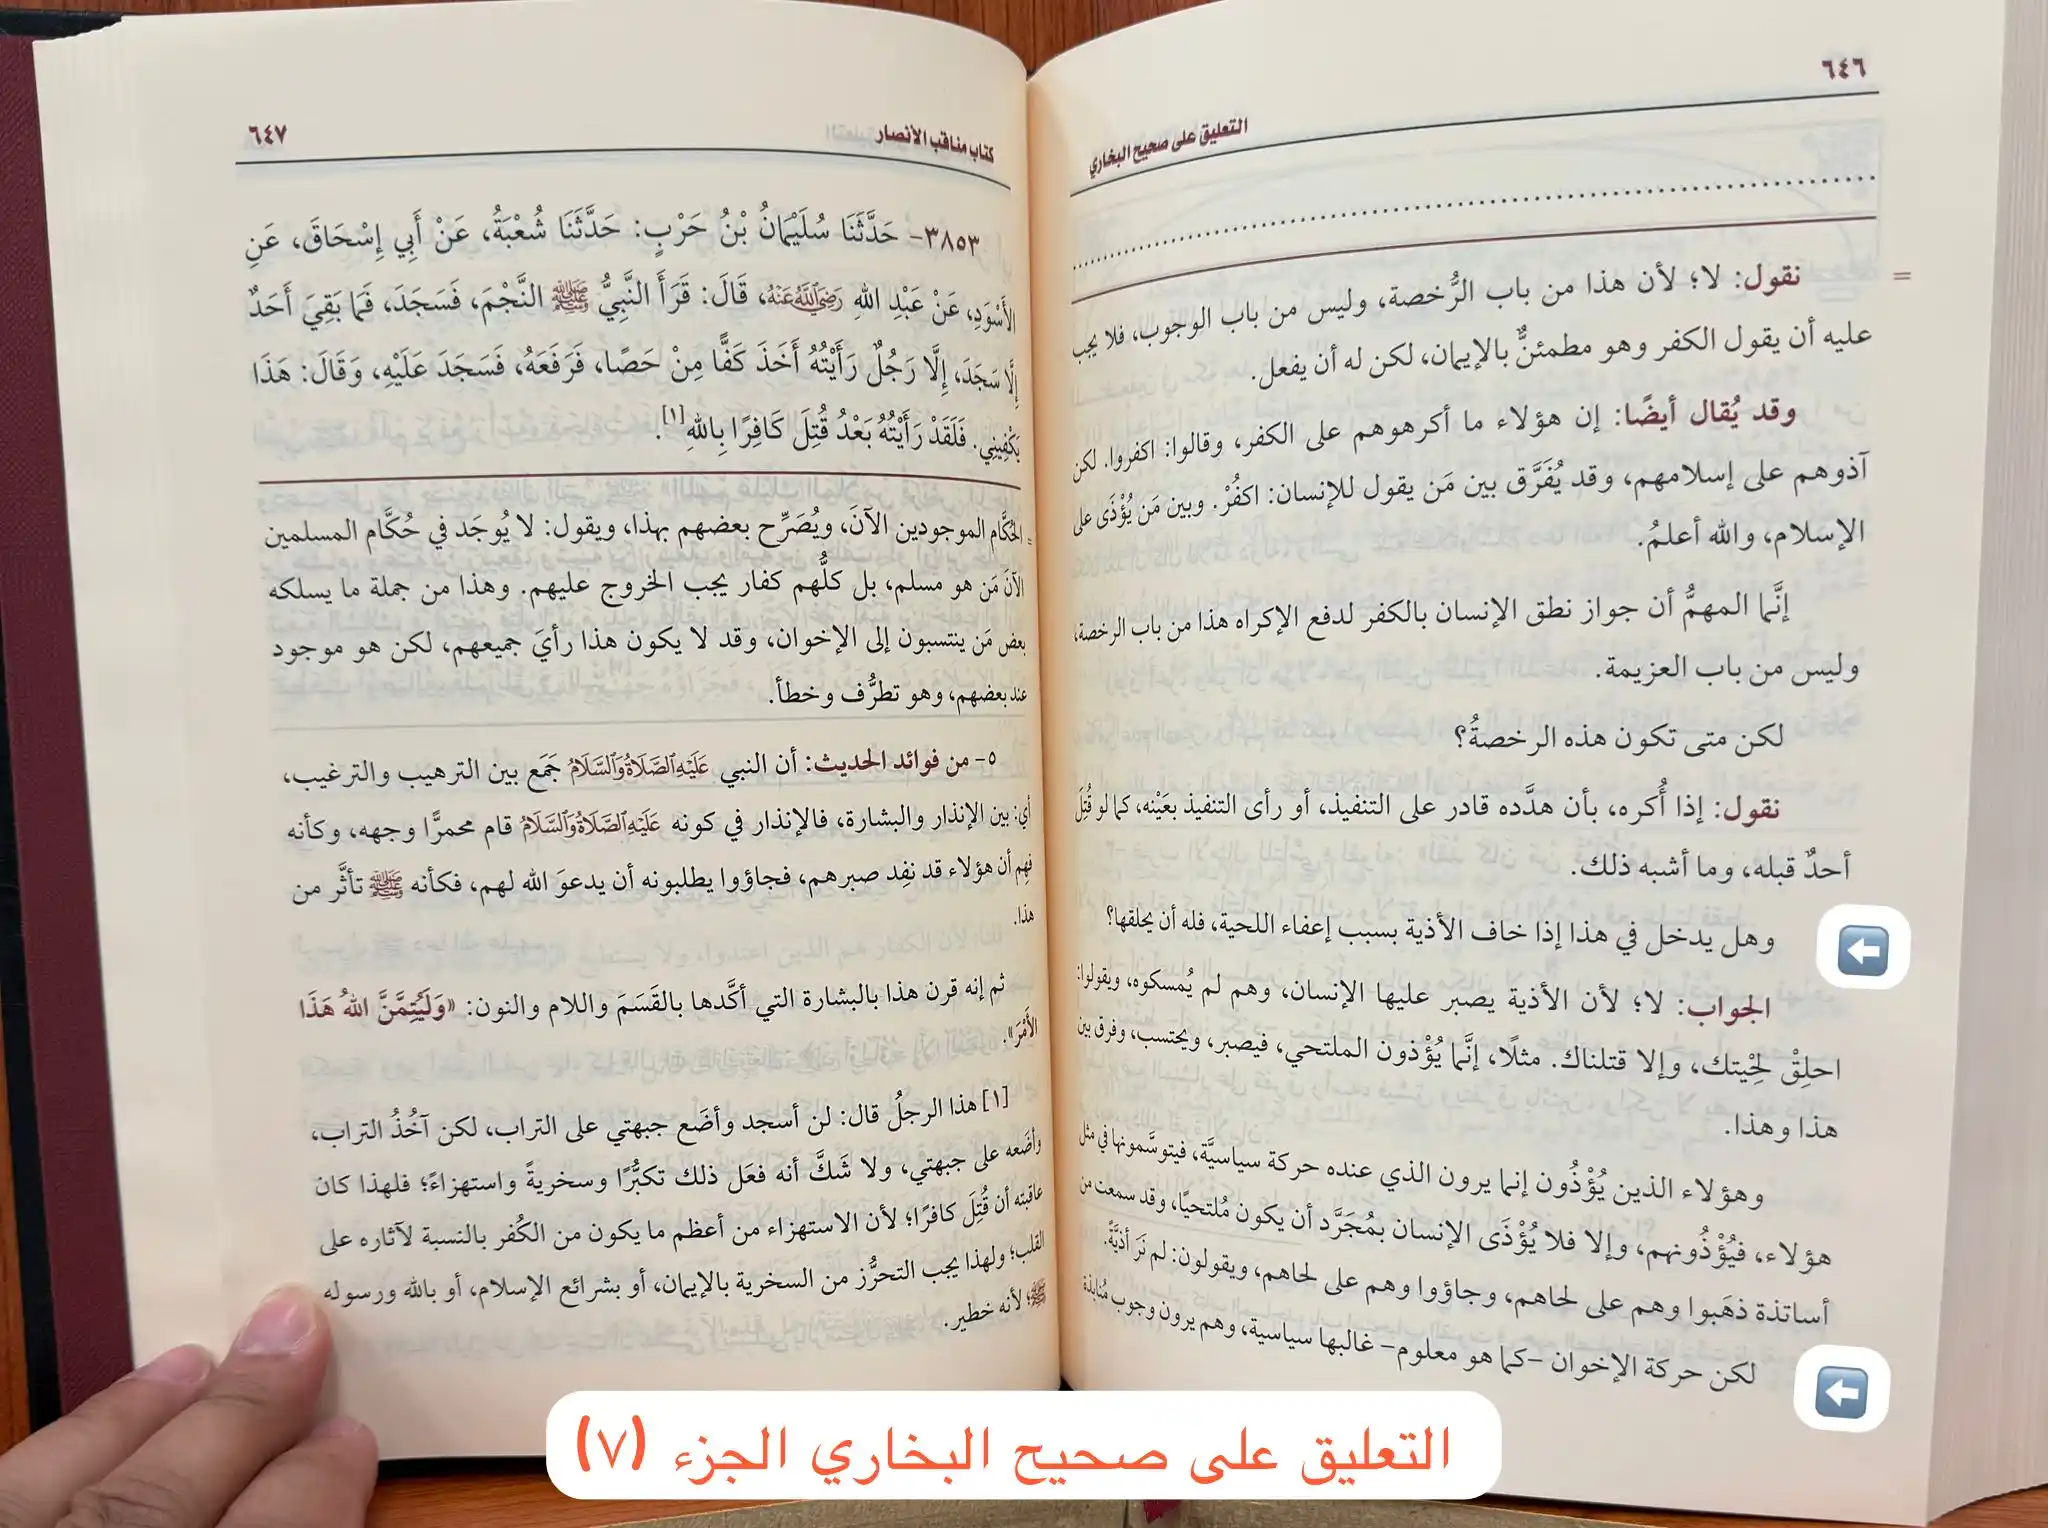 ٦٤٦
التعليق على صحيح البخاري
= نقول: لا؛ لأن هذا من باب الرُّخصة، وليس من باب الوجوب، فلا يجب
عليه أن يقول الكفر وهو مطمئنٌّ بالإيمان، لكن له أن يفعل.
وقد يُقال أيضًا: إن هؤلاء ما أكرهوهم على الكفر، وقالوا: اكفروا. لكن
آذوهم على إسلامهم، وقد يُفَرَّق بين مَن يقول للإنسان: اكفُرْ. وبين مَن يُؤْذَى على
الإسلام، والله أعلمُ.
إنَّما المهمُّ أن جواز نطق الإنسان بالكفر لدفع الإكراه هذا من باب الرخصة،
وليس من باب العزيمة.
لكن متى تكون هذه الرخصةُ؟
نقول: إذا أُكره، بأن هدَّده قادر على التنفيذ، أو رأى التنفيذ بعَيْنه، كما لو قُتِلَ
أحدٌ قبله، وما أشبه ذلك.
وهل يدخل في هذا إذا خاف الأذية بسبب إعفاء اللحية، فله أن يحلقها؟
الجواب: لا؛ لأن الأذية يصبر عليها الإنسان، وهم لم يُمسكوه، ويقولوا:
احلِقْ لِحْيتك، وإلا قتلناك. مثلًا، إنَّما يُؤْذون الملتحي، فيصبر، ويحتسب، وفرق بين
هذا وهذا.
وهؤلاء الذين يُؤْذُون إنما يرون الذي عنده حركة سياسيَّة، فيتوسَّمونها في مثل
هؤلاء، فيُؤْذُونهم، وإلا فلا يُؤْذَى الإنسان بمُجَرَّد أن يكون مُلتحيًا، وقد سمعت من
أساتذة ذهَبوا وهم على لحاهم، وجاؤوا وهم على لحاهم، ويقولون: لم نَرَ أذيَّةً.
لكن حركة الإخوان -كما هو معلوم- غالبها سياسية، وهم يرون وجوب مُنابذة
كتاب مناقب الأنصار
٦٤٧
٣٨٥٣- حَدَّثَنَا سُلَيْمَانُ بْنُ حَرْبٍ: حَدَّثَنَا شُعْبَةُ، عَنْ أَبِي إِسْحَاقَ، عَنِ
الأَسْوَدِ، عَنْ عَبْدِ اللهِ رَضِيَ اللَّهُ عَنْهُ، قَالَ: قَرَأَ النَّبِيُّ ﷺ النَّجْمَ، فَسَجَدَ، فَمَا بَقِيَ أَحَدٌ
إِلَّا سَجَدَ، إِلَّا رَجُلٌ رَأَيْتُهُ أَخَذَ كَفًّا مِنْ حَصًا، فَرَفَعَهُ، فَسَجَدَ عَلَيْهِ، وَقَالَ: هَذَا
يَكْفِينِي. فَلَقَدْ رَأَيْتُهُ بَعْدُ قُتِلَ كَافِرًا بِاللهِ[١].
= الحُكَّام الموجودين الآنَ، ويُصَرِّح بعضهم بهذا، ويقول: لا يُوجَد في حُكَّام المسلمين
الآنَ مَن هو مسلم، بل كلُّهم كفار يجب الخروج عليهم. وهذا من جملة ما يسلكه
بعض مَن ينتسبون إلى الإخوان، وقد لا يكون هذا رأيَ جميعهم، لكن هو موجود
عند بعضهم، وهو تطرُّف وخطأ.
٥- من فوائد الحديث: أن النبي عَلَيْهِ الصَّلَاةُ وَالسَّلَامُ جمَع بين الترهيب والترغيب،
أي: بين الإنذار والبشارة، فالإنذار في كونه عَلَيْهِ الصَّلَاةُ وَالسَّلَامُ قام محمرًّا وجهه، وكأنه
فهِم أن هؤلاء قد نفِد صبرهم، فجاؤوا يطلبونه أن يدعوَ الله لهم، فكأنه ﷺ تأثَّر من
هذا.
ثم إنه قرن هذا بالبشارة التي أكَّدها بالقَسَمَ واللام والنون: «وَلَيُتِمَّنَّ اللهُ هَذَا
الأَمْرَ».
[١] هذا الرجلُ قال: لن أسجد وأضَع جبهتي على التراب، لكن آخُذُ التراب،
وأضَعه على جبهتي، ولا شَكَّ أنه فعَل ذلك تكبُّرًا وسخريةً واستهزاءً؛ فلهذا كان
عاقبته أن قُتِلَ كافرًا؛ لأن الاستهزاء من أعظم ما يكون من الكُفر بالنسبة لآثاره على
القلب؛ ولهذا يجب التحرُّز من السخرية بالإيمان، أو بشرائع الإسلام، أو بالله ورسوله
ﷺ؛ لأنه خطير.
التعليق على صحيح البخاري الجزء (٧)